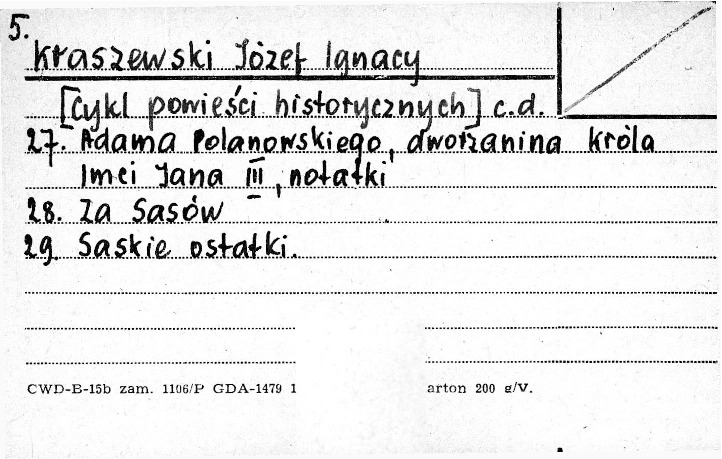 5.
Kraszewski Józef Ignacy
[Cykl powieści historycznych] c.d.
27. Adama Polanowskiego, dworzanina Króla
Imci Jana III, notatki
28. Za Sasów
29. Saskie ostatki.
CWD-B-15b zam. 1106/P GDA-1479 1 arton 200 g/V.